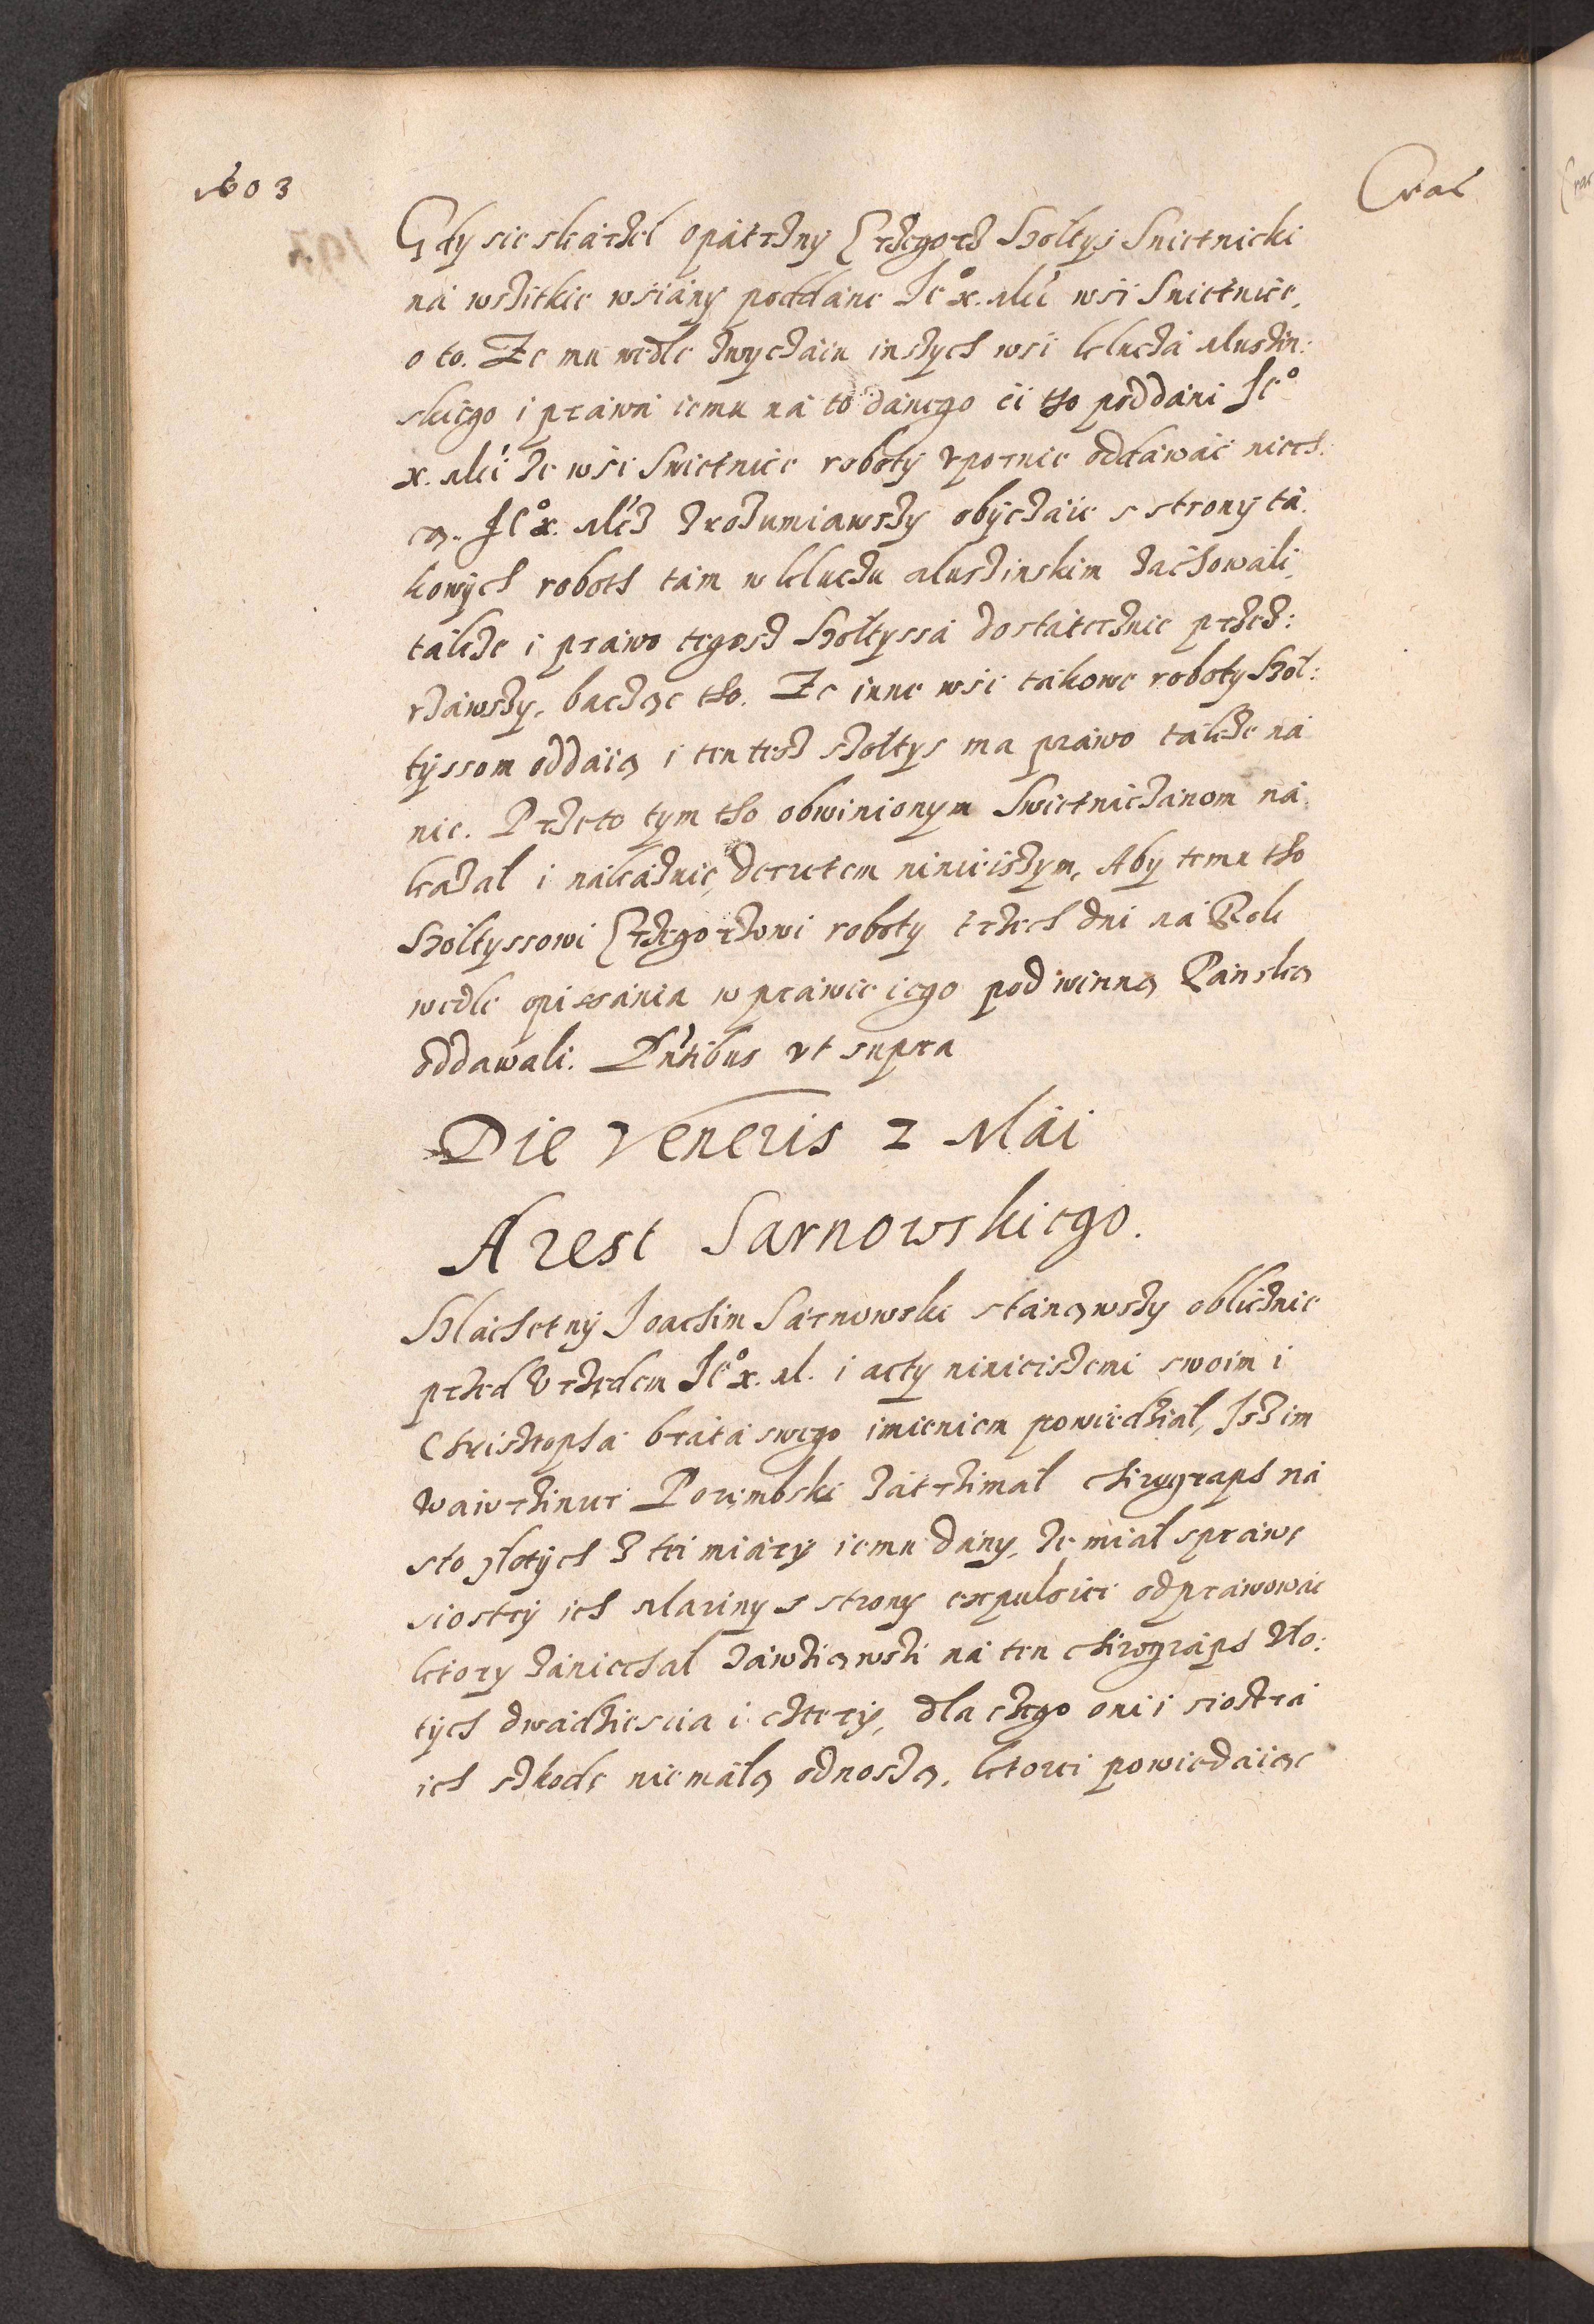 1603
Crac
Gdy sie skarzel opatrzny Grzegorz Szołtys Snietnicki
na wszitkie wsiany poddane Je° x. Mci wsi Snietnice,
o to. Ze mu wedle zwyczaiu inszych wsi klucza Muszin:
skiego i prawa iemu na to danego ci tho poddani Je°
x. Mci ze wsi Snietnice roboty vpornie oddawac niech:
cą. Je° x. Mcz zrozumiawszy obyczaie s strony ta:
kowych roboth tam w kluczu Muszinskim zachowali,
takze i prawo tegosz Szołtyssa dostatecznie przez:
rzawszy, bacząc tho. Ze inne wsi takowe roboty Szoł:
tyssom oddaią i ten tesz szołtys ma prawo takze na
nie. Przeto tym tho obwinionym Swietniczanom na:
kazał i nakaznie, decretem ninieiszym, Aby temu tho
Szołtyssowi Grzegorzowi roboty trzech dni na Rok
wedle opissania w prawie iego pod winną Panską
oddawali. Pntibus vt supra
Die Veneris 2 Maii
Arest Sarnowskiego.
Szlachetny Joachim Sarnowski stanąwszy oblicznie
przed Vrzędem Je° x. M. i acty ninieiszemi swoim i
Christopha brata swego imieniem powiedział, Isz im
Wawrziniec Porembski zatrzimał chirograph na
sto złotych z tei miary iemu dany, ze miał sprawe
siostry ich Mariny s strony expulsiei odprawowac
ktory zaniechał zawziąwszi na ten chirograph zło:
tych dwadziescia i cztery, dla czego oni i siostra
ich szkode niemałą odnoszą, ktorei powiedaiąc